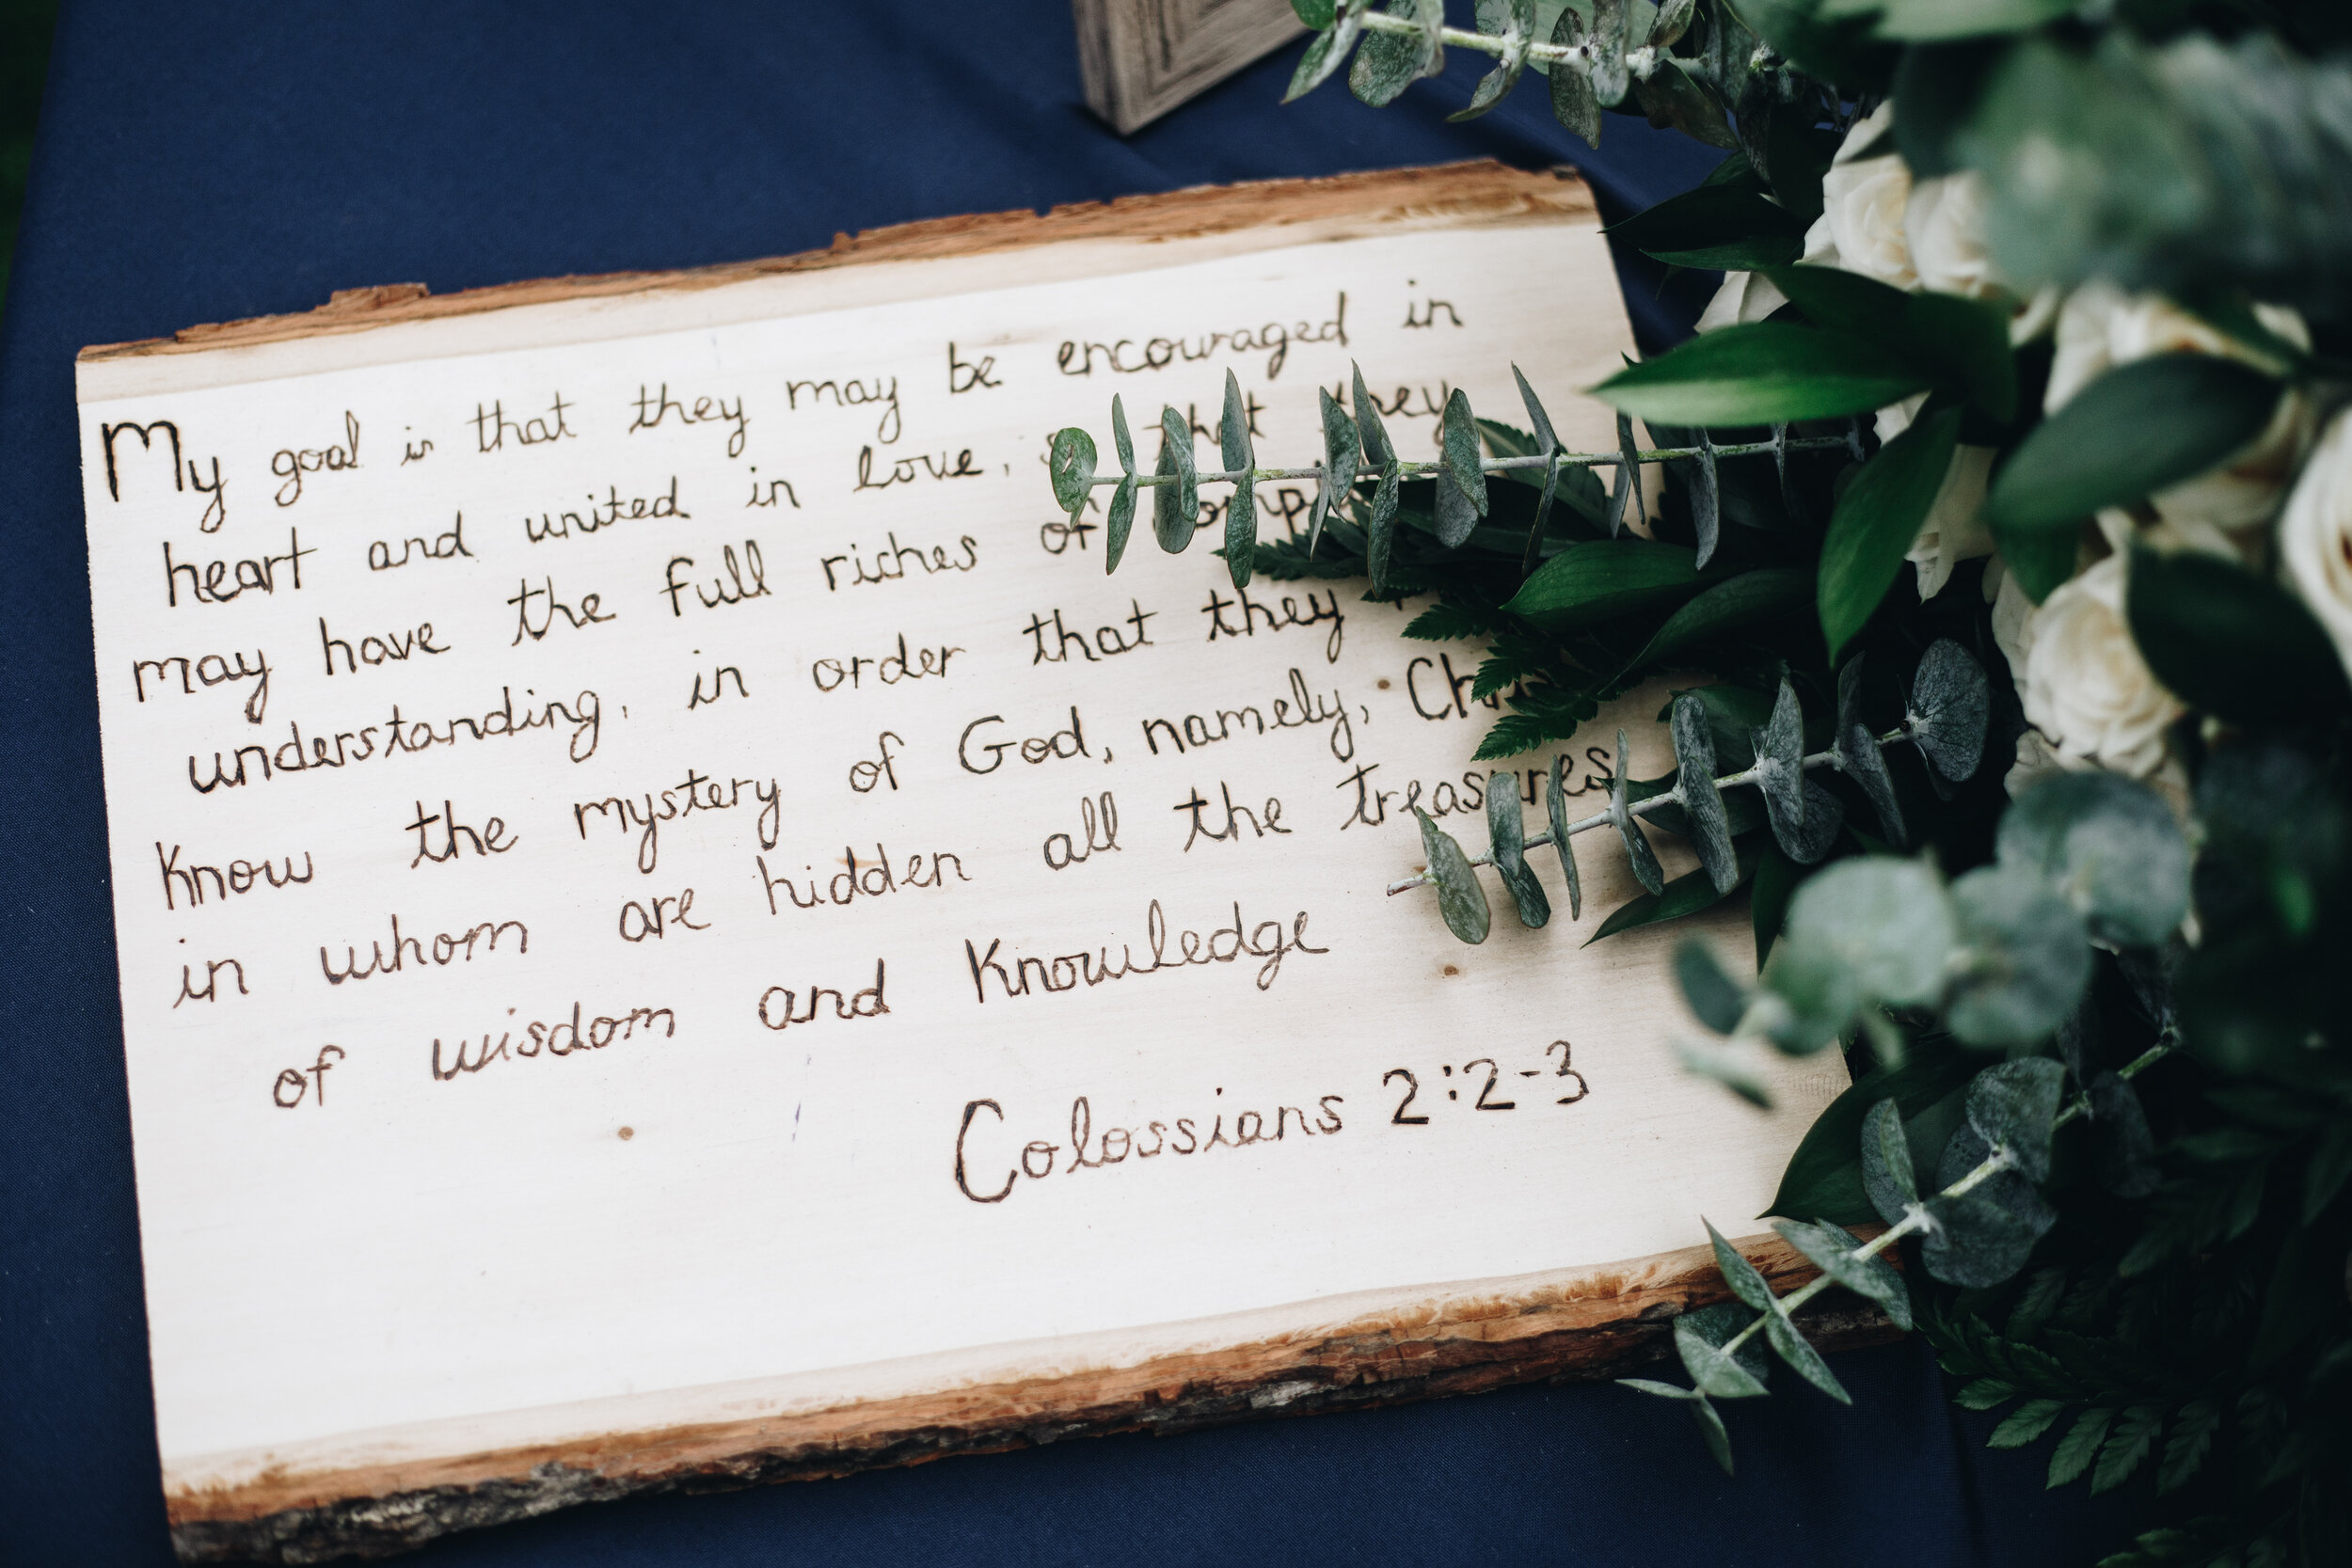 My goal is that they may be encouraged in
heart and united in love, that they
may have the full riches of
understanding, in order that they
Know the mystery of God, namely,
in whom are hidden all the treasures
of wisdom and Knowledge
Colossians 2:2-3